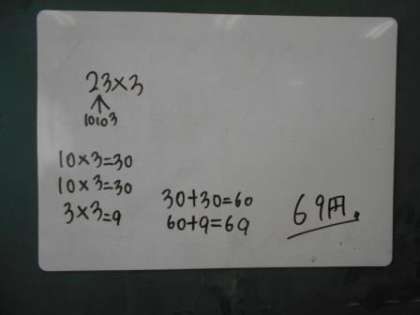 23×3
↑
10 10 3
10×3=30
10×3=30
3×3=9
30+30=60
60+9=69
69円。